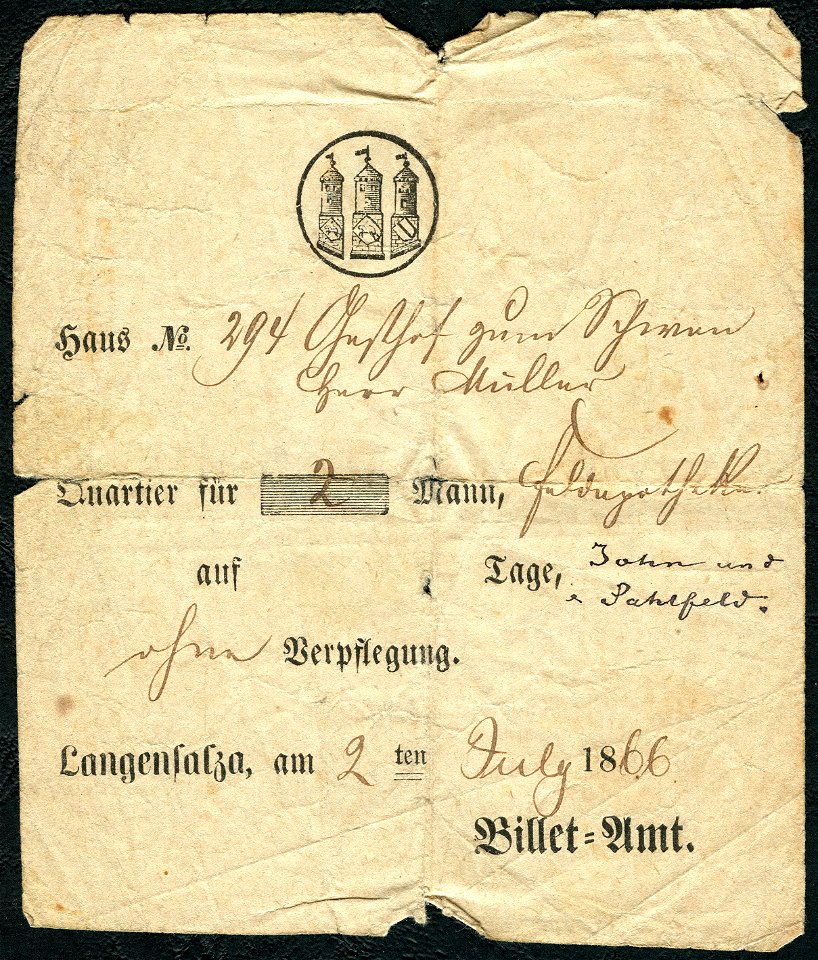 Haus No. 294 Gasthof zum Schwan
Herr Müller
Quartier für 2 Mann, Feldapotheke.
auf Tage, John und
Sahlfeld.
ohne Verpflegung.
Langensalza, am 2 ten July 1866
Billet=Amt.